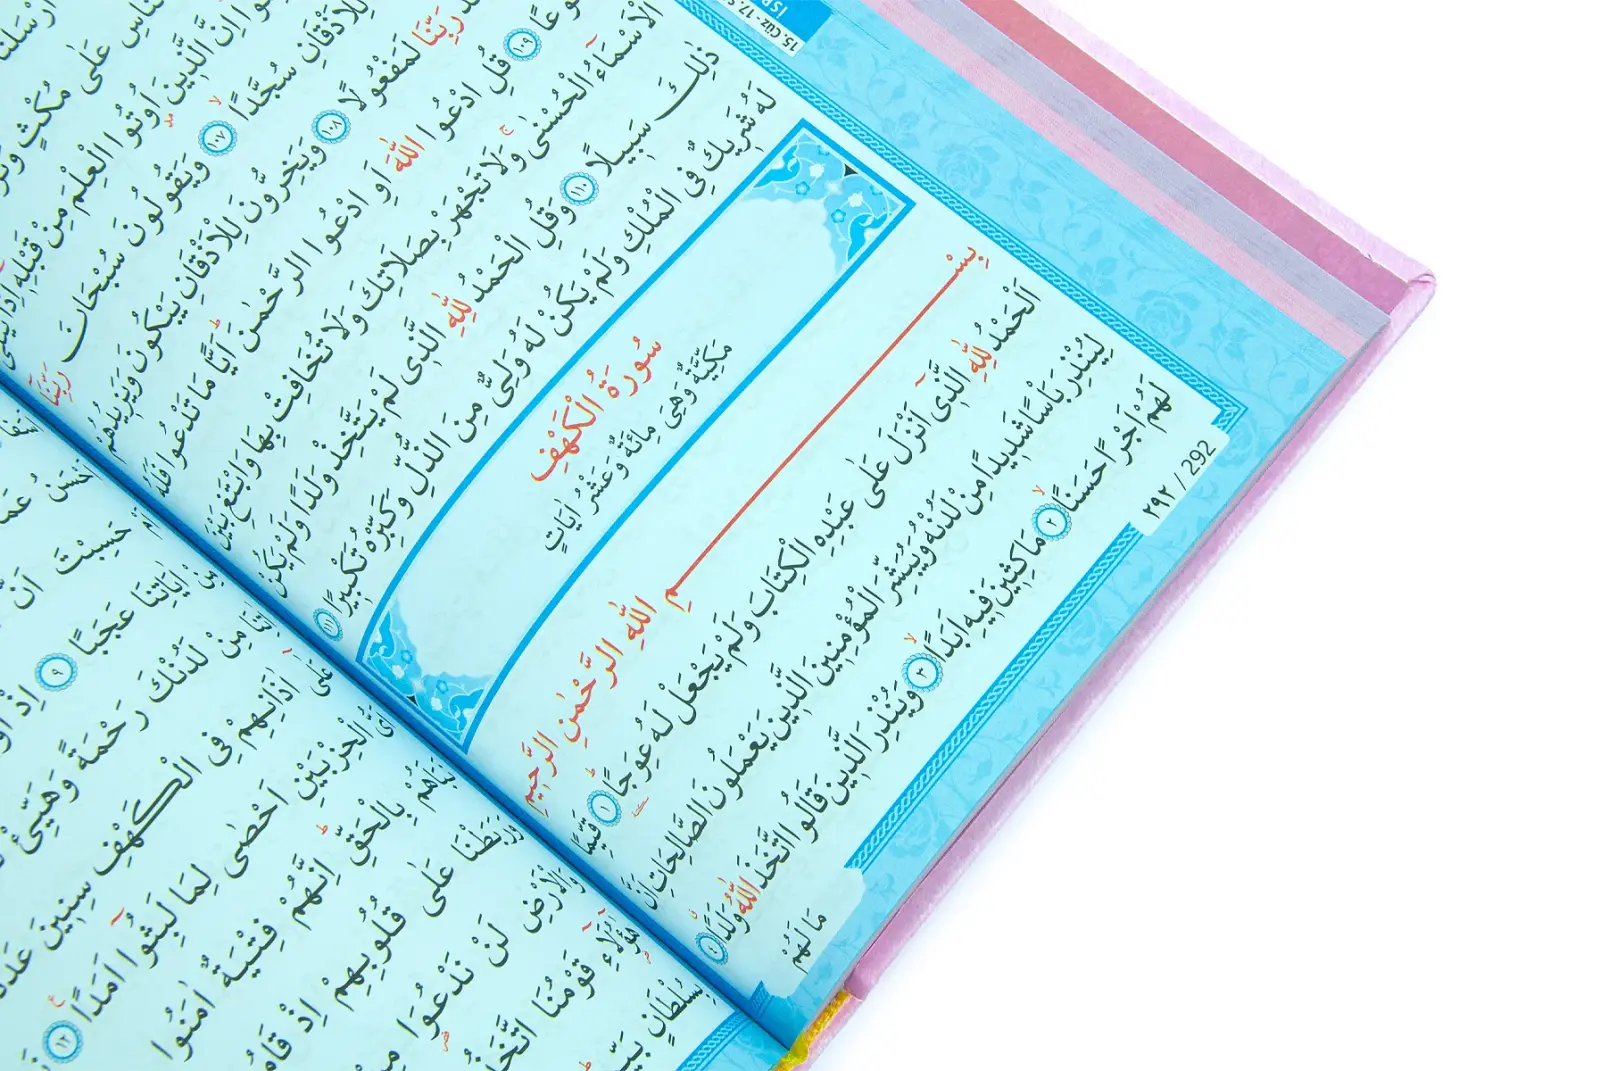 15. Cüz - 17. S
عَلٰى مُكْثٍ
اِنَّ الَّذِينَ اُوتُوا الْعِلْمَ مِنْ قَبْلِهِ
لِلْاَذْقَانِ سُجَّدًا ١٠٧ وَيَقُولُونَ سُبْحَانَ رَبِّنَا
رَبِّنَا لَمَفْعُولًا ١٠٨ وَيَخِرُّونَ لِلْاَذْقَانِ يَبْكُونَ وَيَزِيدُهُمْ
١٠٩ قُلِ ادْعُوا اللّٰهَ اَوِ ادْعُوا الرَّحْمٰنَ اَيًّا مَا تَدْعُوا فَلَهُ
الْاَسْمَآءُ الْحُسْنٰى وَلَا تَجْهَرْ بِصَلَاتِكَ وَلَا تُخَافِتْ بِهَا وَابْتَغِ بَيْنَ
ذٰلِكَ سَبِيلًا ١١٠ وَقُلِ الْحَمْدُ لِلّٰهِ الَّذِى لَمْ يَتَّخِذْ وَلَدًا وَلَمْ يَكُنْ
لَهُ شَرِيكٌ فِى الْمُلْكِ وَلَمْ يَكُنْ لَهُ وَلِىٌّ مِنَ الذُّلِّ وَكَبِّرْهُ تَكْبِيرًا ١١١
سُورَةُ الْكَهْفِ
مَكِّيَّةٌ وَهِىَ مِائَةٌ وَعَشْرُ اٰيَاتٍ
بِسْمِ اللّٰهِ الرَّحْمٰنِ الرَّحِيمِ
اَلْحَمْدُ لِلّٰهِ الَّذِٓى اَنْزَلَ عَلٰى عَبْدِهِ الْكِتَابَ وَلَمْ يَجْعَلْ لَهُ عِوَجًا ١ قَيِّمًا
لِيُنْذِرَ بَاْسًا شَدِيدًا مِنْ لَدُنْهُ وَيُبَشِّرَ الْمُؤْمِنِينَ الَّذِينَ يَعْمَلُونَ الصَّالِحَاتِ اَنَّ
لَهُمْ اَجْرًا حَسَنًا ٢ مَاكِثِينَ فِيهِ اَبَدًا ٣ وَيُنْذِرَ الَّذِينَ قَالُوا اتَّخَذَ اللّٰهُ وَلَدًا ٤
٢٩٢ / 292
مَا لَهُمْ
اَحْسَنُ
حَسِبْتَ اَنَّ
اٰيَاتِنَا عَجَبًا ٩ اِذْ
مِنْ لَدُنْكَ رَحْمَةً وَهَيِّئْ
عَلٰٓى اٰذَانِهِمْ فِى الْكَهْفِ سِنِينَ
الْحِزْبَيْنِ اَحْصٰى لِمَا لَبِثُٓوا اَمَدًا ١٢
بِالْحَقِّ اِنَّهُمْ فِتْيَةٌ اٰمَنُوا
وَرَبَطْنَا عَلٰى قُلُوبِهِمْ اِذْ
وَالْاَرْضِ لَنْ نَدْعُوَا
هٰٓؤُلَٓاءِ قَوْمُنَا اتَّخَذُ
بِسُلْطَانٍ